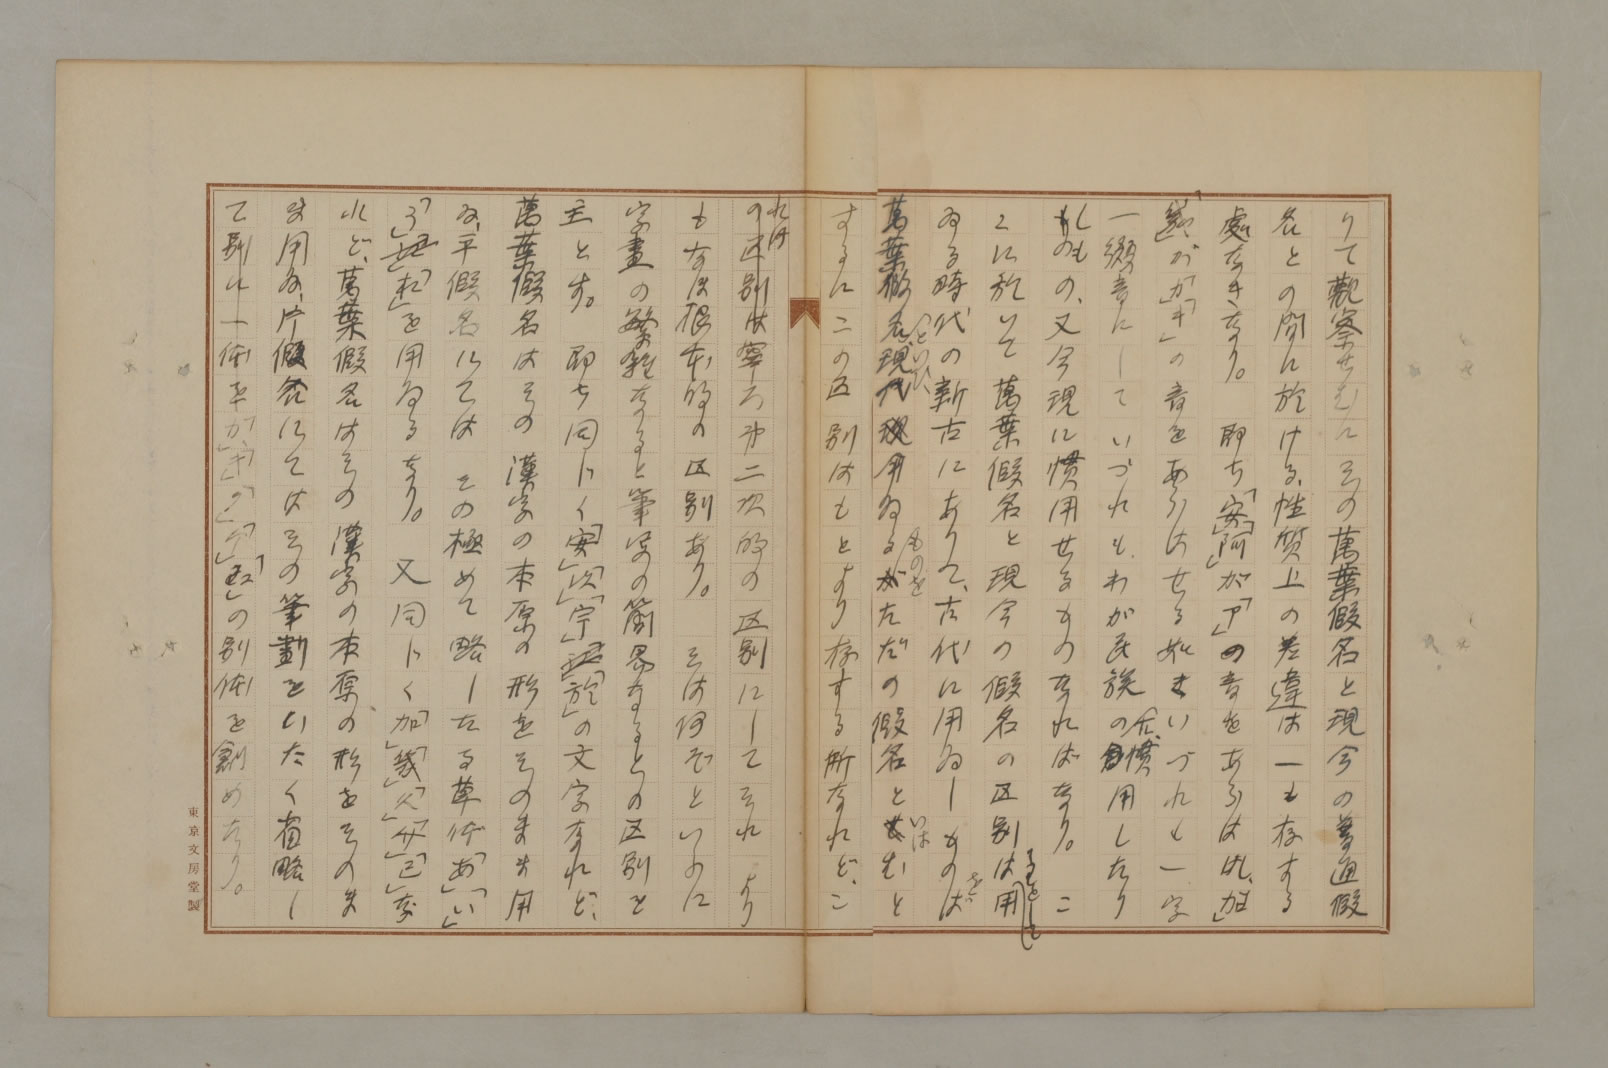 りて觀察せむにその萬葉假名と現今の普通假
名との間に於ける性質上の差違は一も存する
處なきなり。即ち「安」「阿」が「ア」の音をあらはし、「加」
が「か」「キ」の音をあらはせる如きいづれも一字
一綴音にしていづれもわが民族の慣用したり
しもの、又今現に慣用せるものなればなり。こ
こに於いて萬葉假名と現今の假名の区別は用
ゐる時代の新古にありて、古代に用ゐしものは
萬葉假名といひ現代用ゐるものをただの假名といはむと
するに二の区別はもとより存する所なれど、こ
れは
の区別は寧ろ第二次的の区別にしてそれより
もなほ根本的の区別あり。そは何ぞといふに
字畫の繁雜なると筆法の簡易なるとの区別を
主とす。即ち同じく「安」「以」「宇」「於」の文字なれど、
萬葉假名はその漢字の本原の形をそのまま用
ゐ、平假名にてはその極めて略したる草体「あ」「い」
「う」「お」を用ゐるなり。又同じく「加」「幾」「久」「介」「己」な
れど、萬葉假名はその漢字の本原の形をそのま
ま用ゐ、片假名にてはその筆劃をいたく省略し
て別に一体を「カ」「キ」「ク」「ケ」「コ」の別体を創めたり。
東京文房堂製